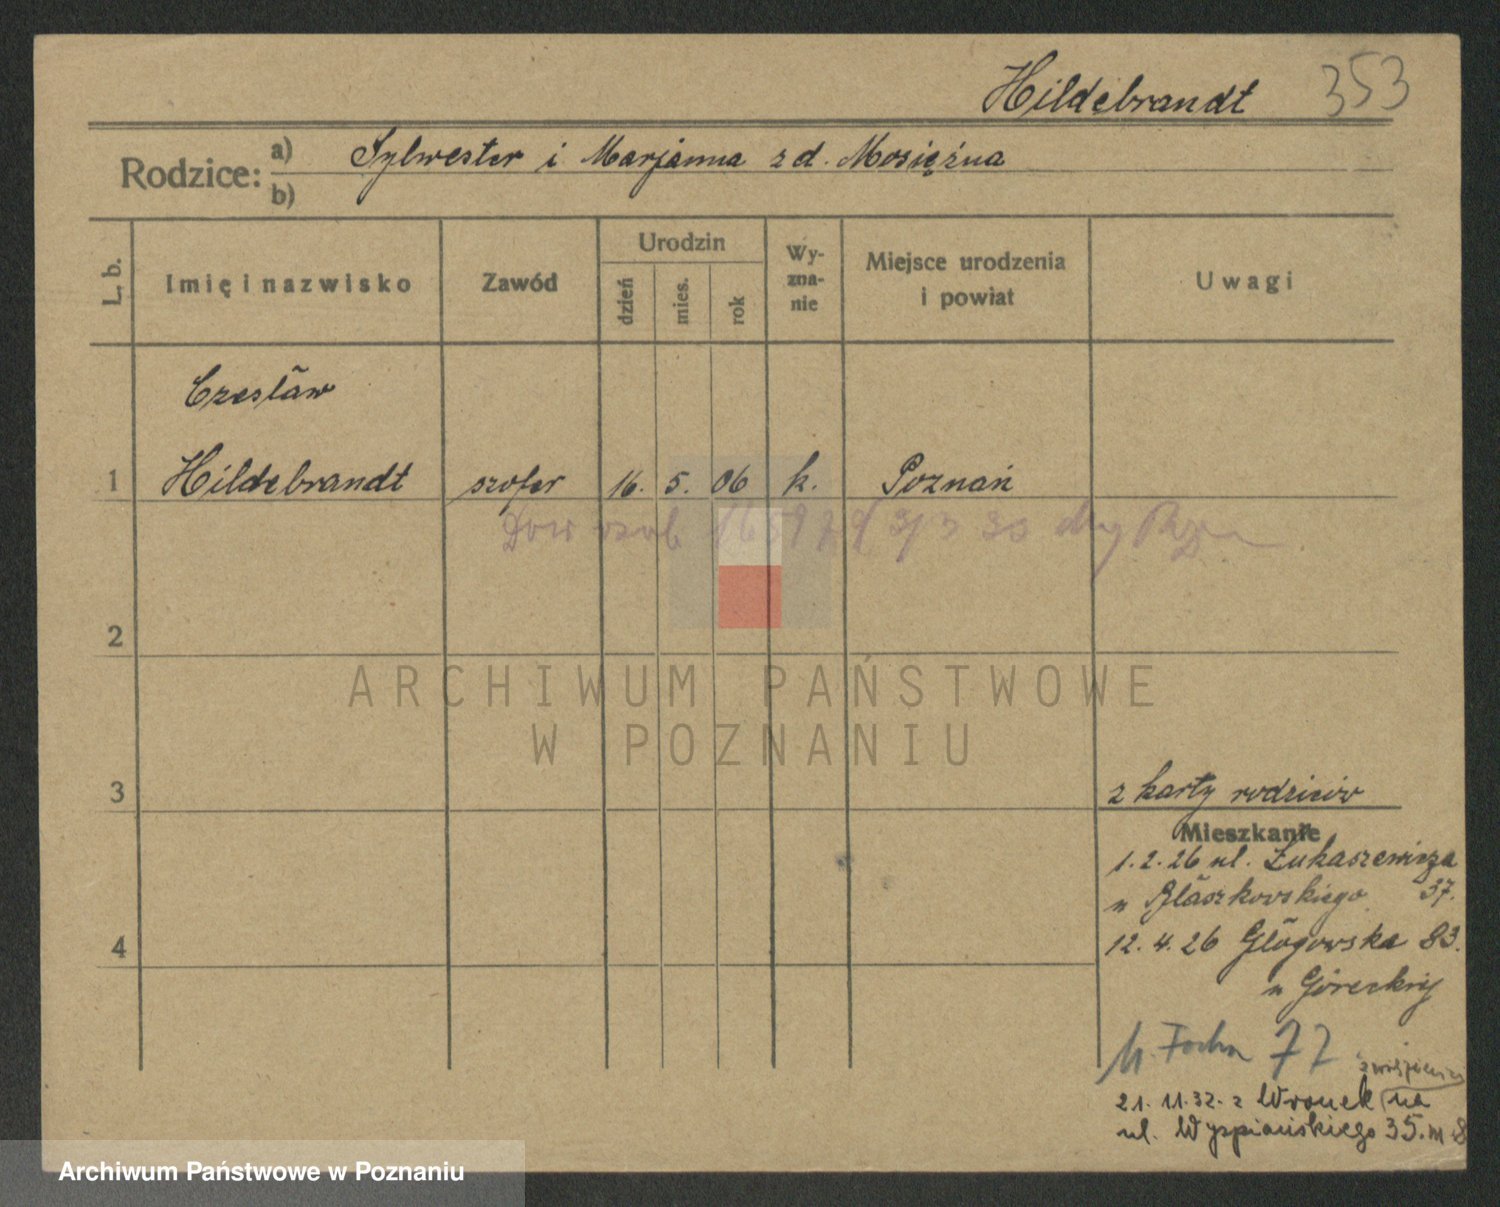 Hildebrandt 353
Rodzice: a) Sylwester i Marjanna z d. Mosiężna
b)
L. b. Imię i nazwisko Zawód Urodzin dzień mies. rok Wy-zna-nie Miejsce urodzenia i powiat Uwagi
Czesław
1 Hildebrandt szofer 16. 5. 06 k. Poznań
Dow osob
2
ARCHIWUM PAŃSTWOWE
W POZNANIU
3 z karty rodziców
Mieszkanie
1.2.26 ul. Łukaszewicza
u Błaszkowskiego 37.
4 12.4.26 Głogowska 83.
u Góreckiej
M. Focha 77
21.11.32. z Wronek na
ul. Wyspiańskiego 35. m 8
Archiwum Państwowe w Poznaniu